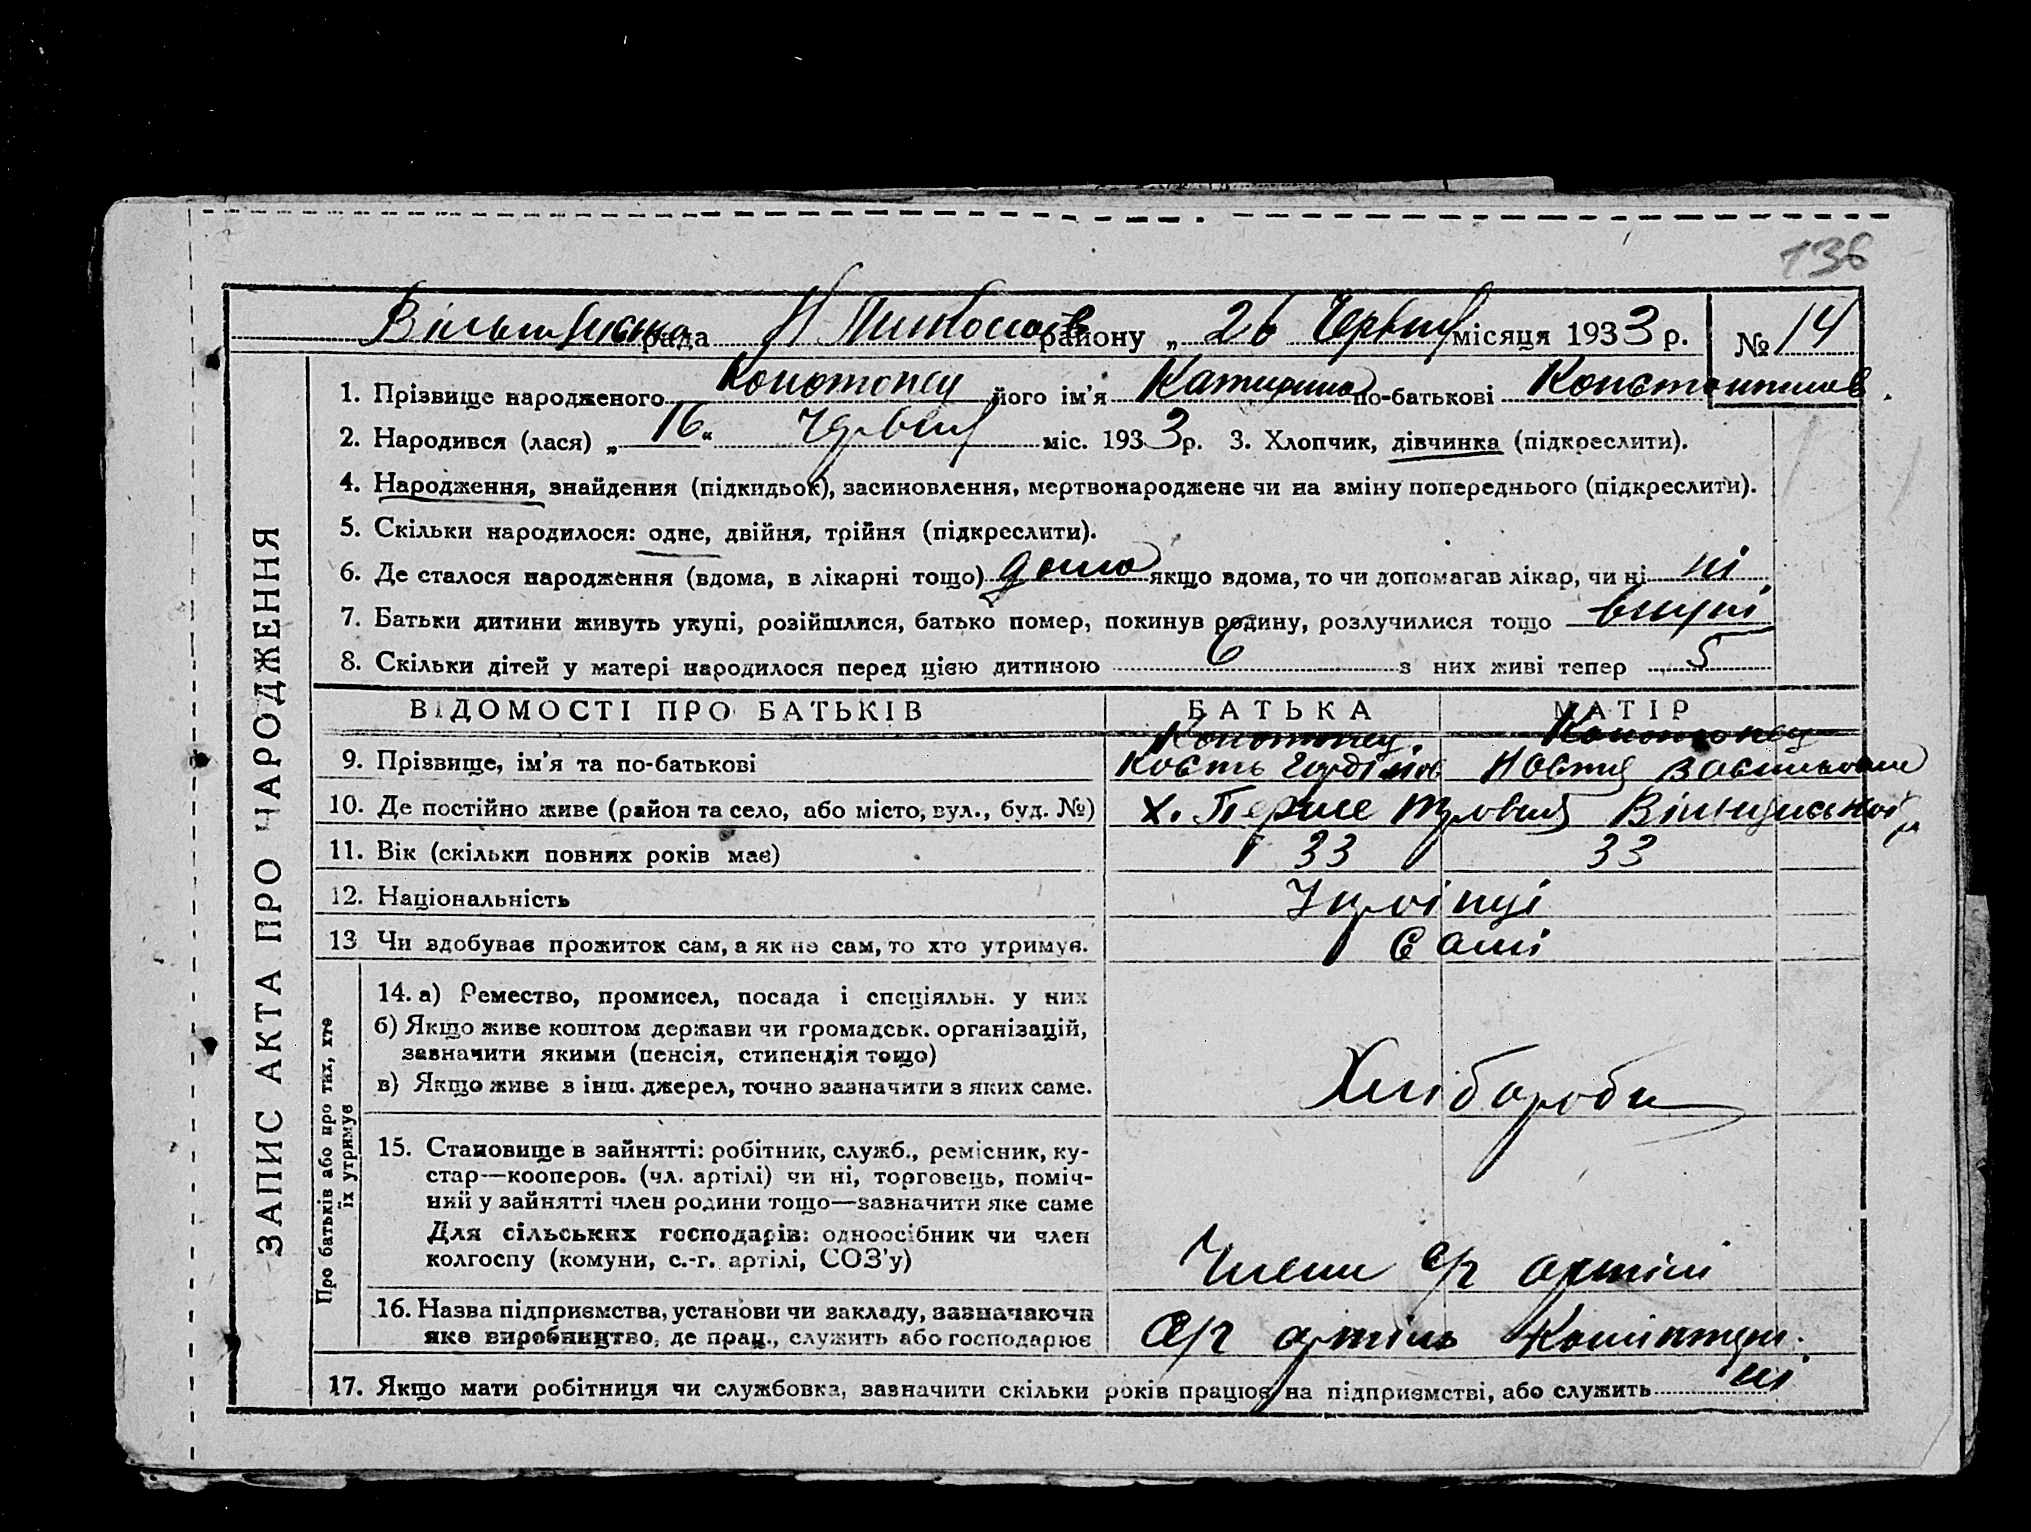 136
рада района „ 26 Червня місяця 1933 р. № 14
1. Прізвище народженого Конотопец його ім'я Катирина по-батькові Константинів
2. Народився (лася) „ 16 " Червня міс. 1933 р. 3. Хлопчик, дівчинка (підкреслити).
4. Народження, знайдення (підкидьок), засиновлення, мертвонароджене чи на зміну попереднього (підкреслити).
5. Скільки народилося: одне, двійня, трійня (підкреслити).
6. Де сталося народження (вдома, в лікарні тощо) дома якщо вдома, то чи допомагав лікар, чи ні ні
7. Батьки дитини живуть укупі, розійшлися, батько помер, покинув родину, розлучилися тощо вкупі
8. Скільки дітей у матері народилося перед цією дитиною 6 з них живі тепер 5
ВІДОМОСТІ ПРО БАТЬКІВ БАТЬКА МАТІР
Конотопец Конотопец
9. Прізвище, ім'я та по-батькові Кость Гордійов Настя Васильовна
10. Де постійно живе (район та село, або місто, вул., буд. №) х. Перше Травня
11. Вік (скільки повних років має) 33 33
12. Національність Українці
13 Чи здобуває прожиток сам, а як не сам, то хто утримує. Самі
14. а) Ремество, промисел, посада і спеціяльн. у них
б) Якщо живе коштом держави чи громадськ. організацій,
зазначити якими (пенсія, стипендія тощо)
в) Якщо живе з інш. джерел, точно зазначити з яких саме. Хлібороби
15. Становище в зайнятті: робітник, служб., ремісник, ку-
стар—кооперов. (чл. артілі) чи ні, торговець, поміч-
ний у зайнятті член родини тощо—зазначити яке саме
Для сільських господарів: одноосібник чи член
колгоспу (комуни, с.-г. артілі, СОЗ'у) Члени с/г артілі
16. Назва підприємства, установи чи закладу, зазначаючи
яке виробництво, де прац., служить або господарює С/г артіль Комінтерн.
17. Якщо мати робітниця чи службовка, зазначити скільки років працює на підприємстві, або служить ні
ЗАПИС АКТА ПРО НАРОДЖЕННЯ
Про батьків або про тих, хто
їх утримує